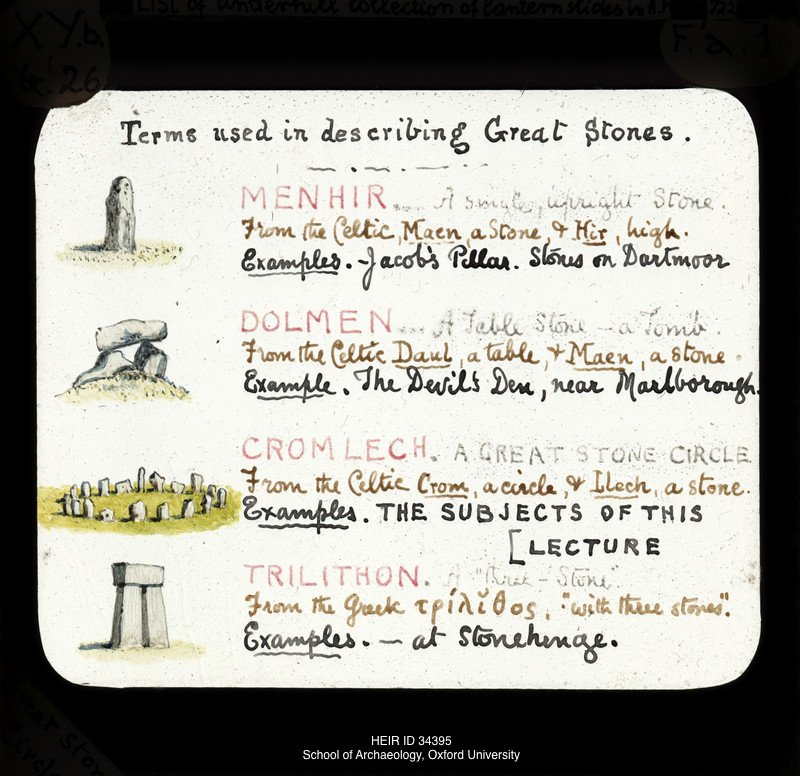 List of Underhill collection of lantern slides in
XY.b.
F. a. 1
26
Terms used in describing Great Stones.
MENHIR... A single, upright Stone.
From the Celtic, Maen, a Stone, & Hir, high.
Examples. - Jacob's Pillar. Stones on Dartmoor
DOLMEN... A Table Stone - a Tomb.
From the Celtic Daul, a table, & Maen, a stone.
Example. The Devil's Den, near Marlborough.
CROMLECH. A GREAT STONE CIRCLE
From the Celtic Crom, a circle, & Llech, a stone.
Examples. THE SUBJECTS OF THIS
[LECTURE
TRILITHON. A "Three-Stone"
From the Greek τρίλῐθος, "with three stones".
Examples. - at Stonehenge.
Great Stone
Circles
HEIR ID 34395
School of Archaeology, Oxford University